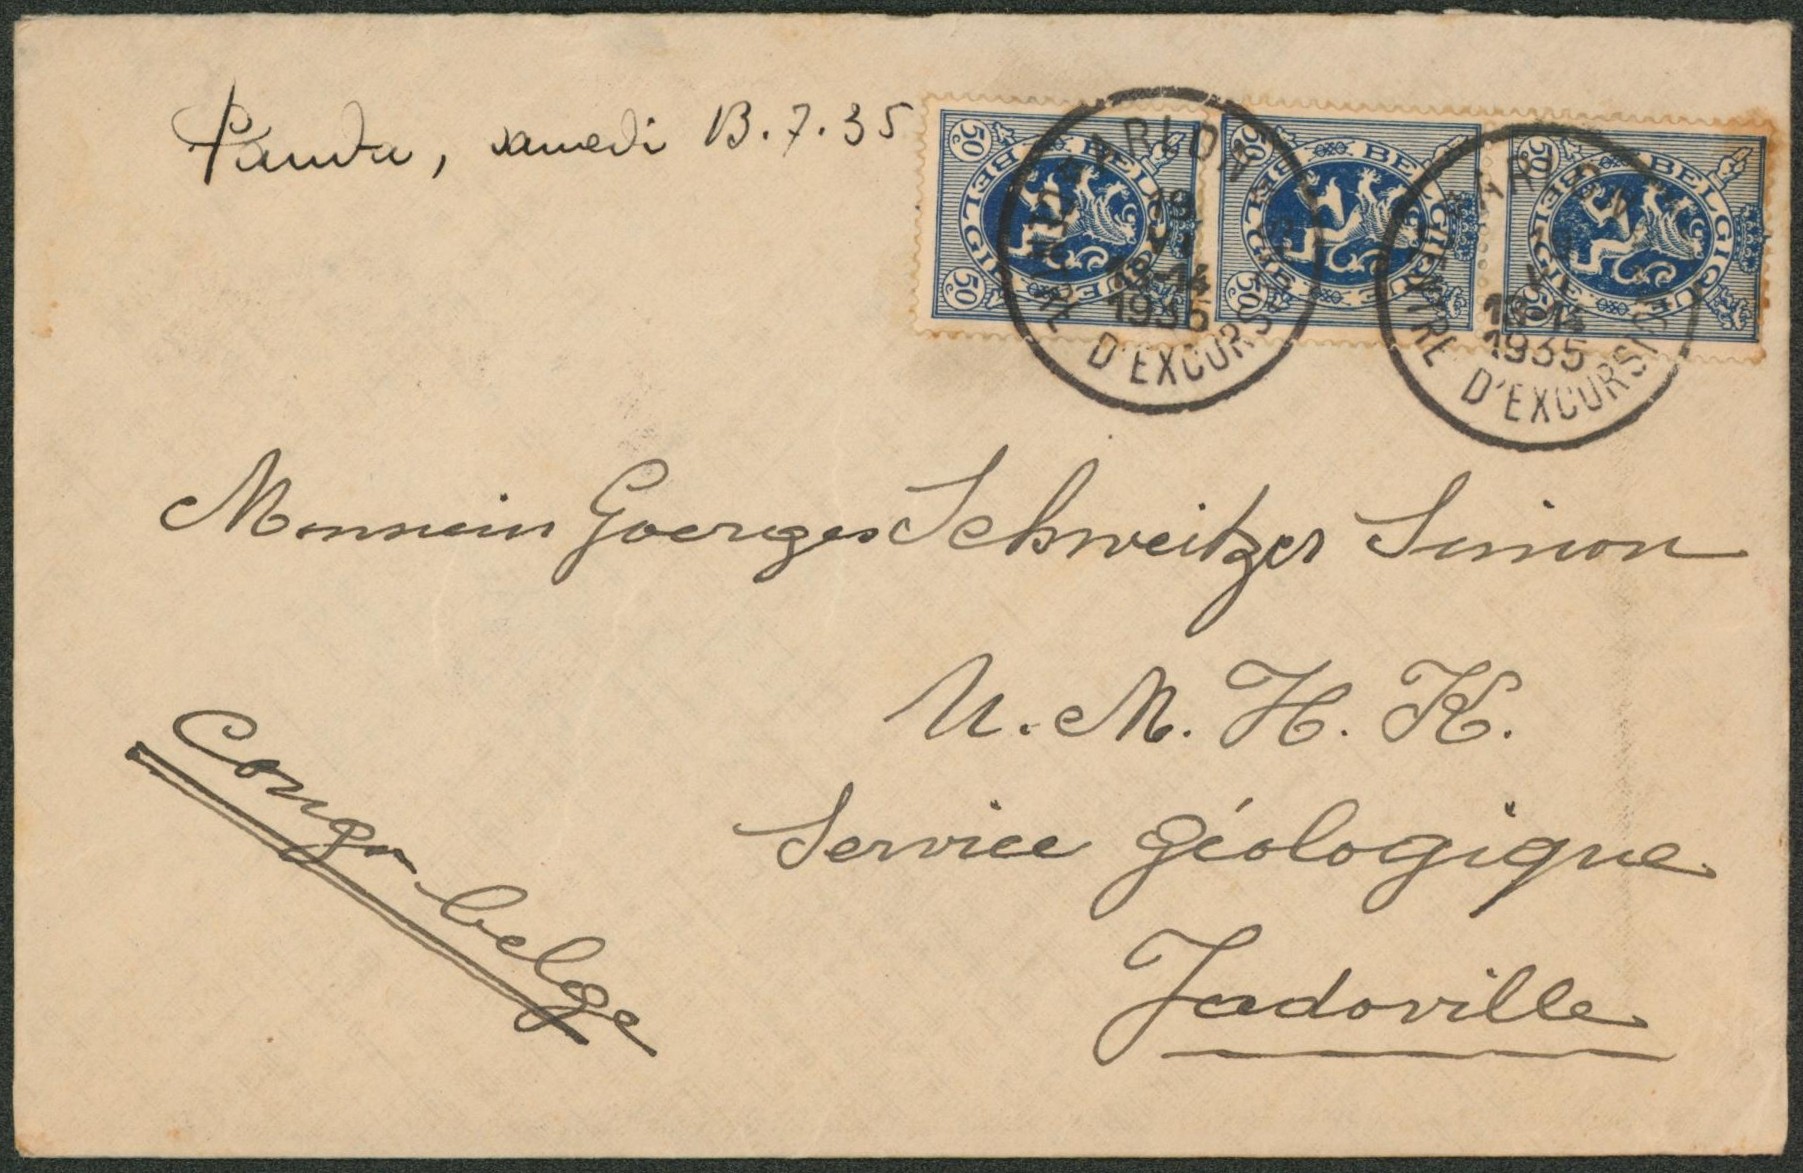 Panda, samedi 13.7.35
50c BELGIQUE BELGIË 50c
50c BELGIQUE BELGIË 50c
50c BELGIQUE BELGIË 50c
ARLON 19 VI 13-14 1935 CENTRE D'EXCURSIONS
ARLON VI 13-14 1935 CENTRE D'EXCURSIONS
Monsieur Goerges Schweitzer Simon
U. M. H. K.
Service géologique
Jadoville
Congo belge